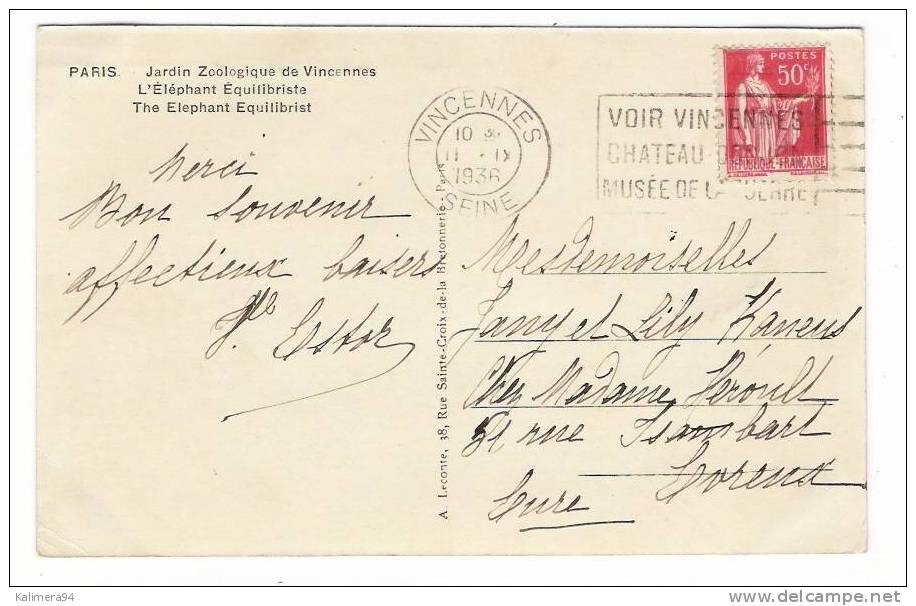 PARIS. Jardin Zoologique de Vincennes
L'Éléphant Équilibriste
The Elephant Equilibrist
Merci
Bon souvenir
affectueux baisers
Estor
A. Leconte, 38, Rue Sainte-Croix-de-la Bretonnerie - Paris
VINCENNES
10
11 - IX
1936
SEINE
VOIR VINCENNES
CHATEAU
MUSÉE DE LA GUERRE
POSTES
50c
RÉPUBLIQUE FRANÇAISE
Mesdemoiselles
et Lily
Chez Madame Héroult
rue Isambart
Eure
Kalimera94
delcampe.net